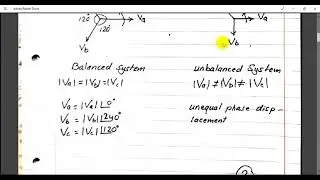 120°
Va
120°
Vb
Vb
Balanced System
|Va| = |Vb| = |Vc|
Va = |Va| ∠0°
Vb = |Vb| ∠240°
Vc = |Vc| ∠120°
unbalanced System
|Va| ≠ |Vb| ≠ |Vc|
unequal phase disp-
lacement